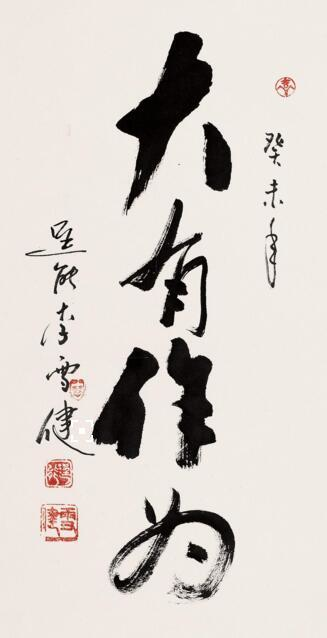 癸未年
大有作为
李雪健